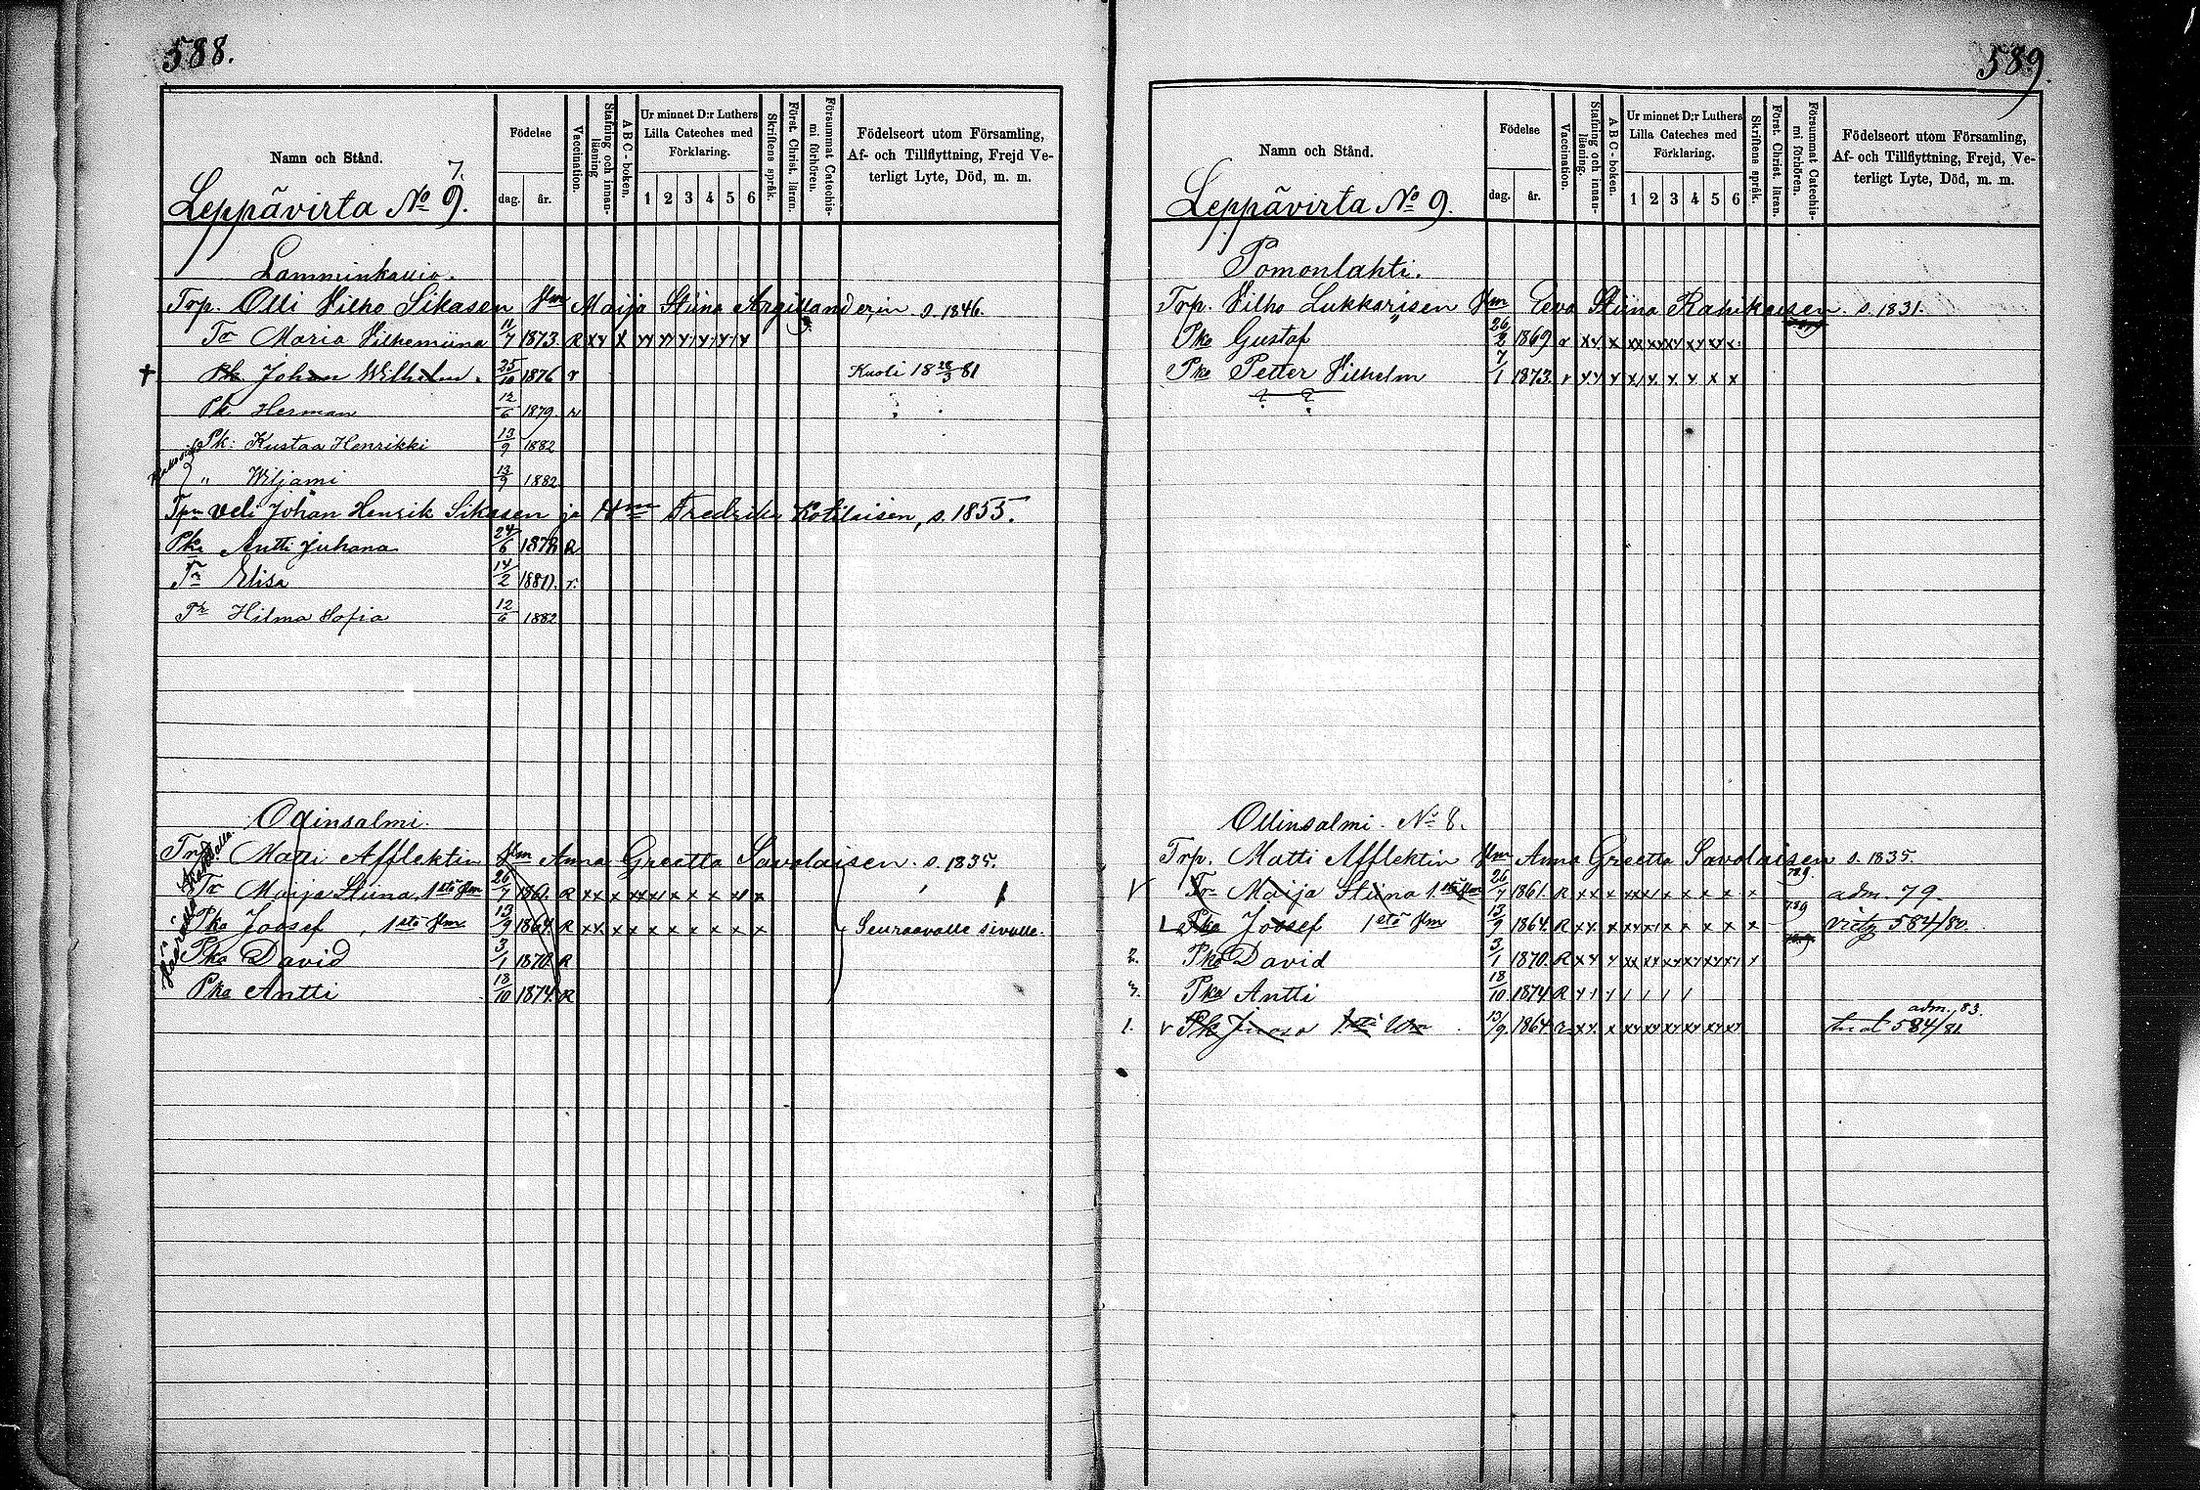 588.
Namn och Stånd.
Födelse
dag. år.
Vaccination.
Stafning och innan-läsning
ABC-boken.
Ur minnet D:r Luthers
Lilla Cateches med
Förklaring.
1 2 3 4 5 6
Skriftens språk.
Först. Christ. läran.
Försummat Catechis-mi förhören.
Födelseort utom Församling,
Af- och Tillflyttning, Frejd Ve-
terligt Lyte, Död, m. m.
7.
Leppävirta No 9.
Lamminkavio.
Trp. Olli Vilho Sikasen Hm Maija Stiina Argillanderin s. 1846.
Tr Maria Vilhemiina 11/7 1873 R xy x yy yy yy yy yy y
† Pk. Johan Wilhelm. 25/10 1876 r Kuoli 18 28/3 81
Pk. Herman 12/6 1879. r
Pk: Kustaa Henrikki 13/9 1882
„ Wiljami 13/9 1882
Tpn veli Johan Henrik Sikasen ja Hm Fredrika Kotilaisen, s. 1855.
Pka Antti Juhana 24/6 1878 R
Tr Elisa 14/2 1880. r.
Tr Hilma Sofia 12/6 1882
Odinsalmi.
Trp Matti Afflektin Hm Anna Greetta Savolaisen. s. 1835.
Tr Maija Stiina, 1stä Hm 26/7 1861. R xx x xx x x x x x
Pka Joosef, 1stä Hm 13/9 1864. R xx x x x x x x x Seuraavalle sivulle.
Pka David 3/1 1870. R
Pka Antti 18/10 1874. R
589.
Namn och Stånd.
Födelse
dag. år.
Vaccination.
Stafning och innan-läsning.
ABC-boken.
Ur minnet D:r Luthers
Lilla Cateches med
Förklaring.
1 2 3 4 5 6
Skriftens språk.
Först. Christ. läran.
Försummat Catechis-mi förhören.
Födelseort utom Församling,
Af- och Tillflyttning, Frejd, Ve-
terligt Lyte, Död, m. m.
Leppävirta No 9.
Pomonlahti.
Trp. Vilho Lukkarisen Hm Eeva Stiina Rahikaisen. s. 1831.
Pka Gustaf 26/2 1869 r xx x xx xx xy xy xx x
Pka Petter Vilhelm 7/1 1873. r yy y xy x. x. y x x
? ?
Ollinsalmi. No 8.
Trp. Matti Afflektin Hm Anna Greetta Savolaisen s. 1835.
V Tr Maija Stiina 1.stä Hm 26/7 1861. R xx x xx x x x x x x 789 adm. 79.
L Pka Joosef 1stä Hm 13/9 1864. R xx. x xx x x x x x x 789 584/80.
2. Pka David 3/1 1870. R xy y xx xx xy xy xy xy y
3. Pka Antti 18/10 1874 R y / / / / / /
1. v Pk 13/9 1864 xx x xy xy xy xy xy xy adm. 83. 584/81